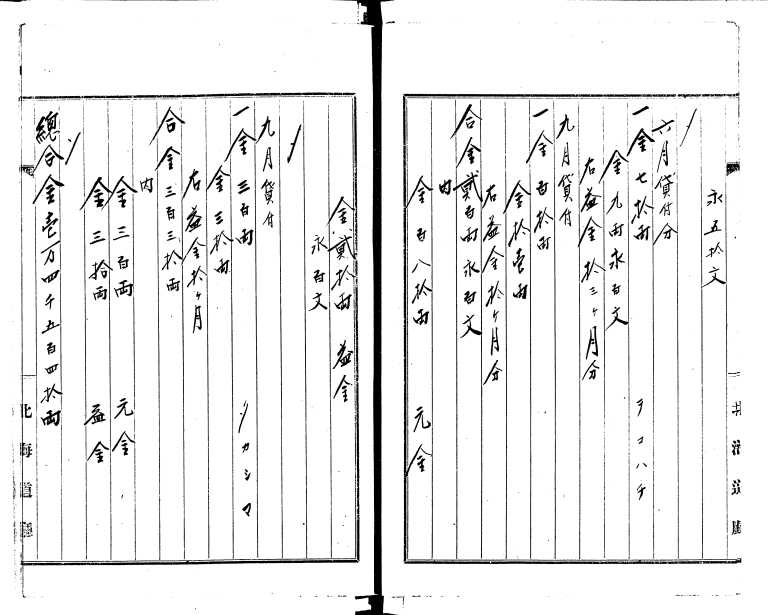 永五拾文
〃
六月貸付分
一金七拾両 ヲコハチ
金九両永百文
右益金拾三ヶ月分
九月貸付
一金百拾両
金拾壱両
右益金拾ヶ月分
合金貳百両永百文
内
金百八拾両 元金
金貳拾両 益金
永百文
〃
九月貸付
一金三百両 リカシマ
金三拾両
右益金拾ヶ月
合金三百三拾両
内
金三百両 元金
金三拾両 益金
〃
總合金壱万四千五百四拾両
北海道廳